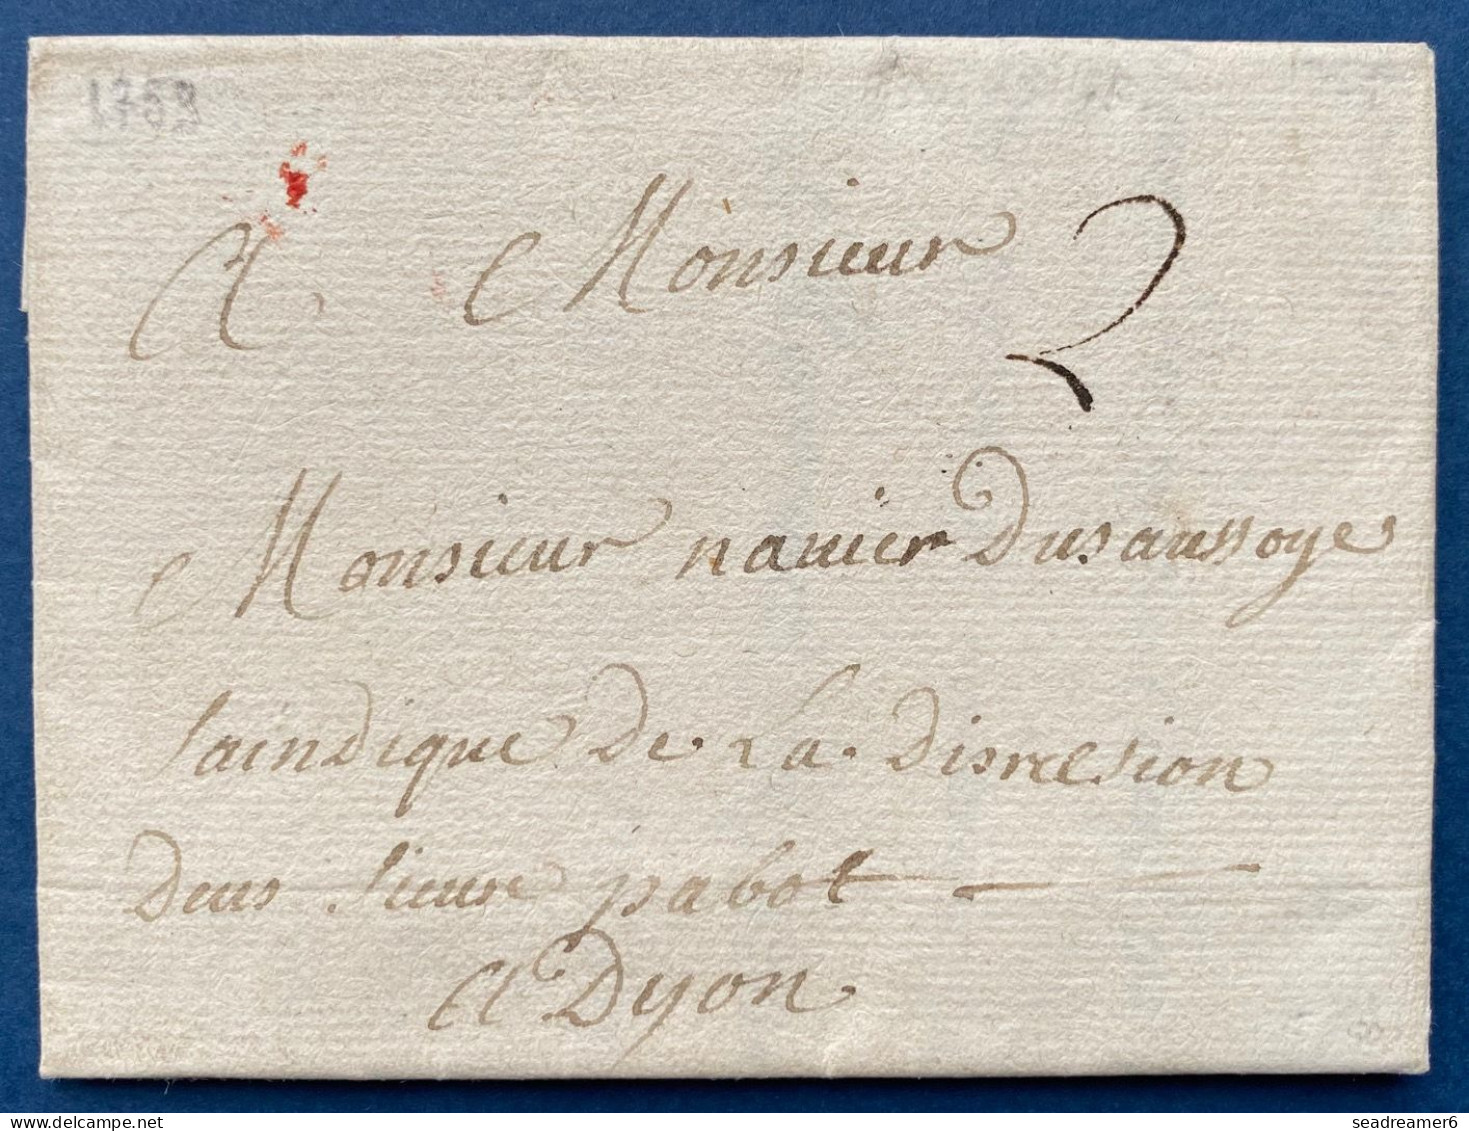 1759
A Monsieur
2
Monsieur navier Dusaussoye
saindique De. La. Discresion
Deus sieure pabot
A Dyon.
seadreamer6